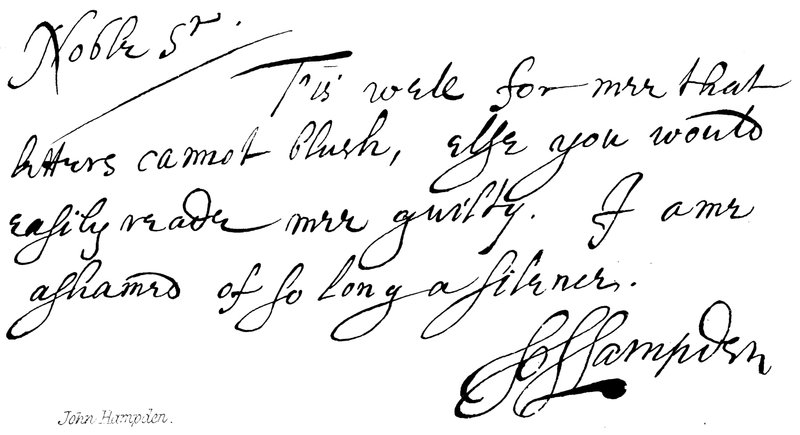 Noble Sr.
Tis well for mee that
letters cannot blush, else you would
easily reade mee guilty. I ame
ashamed of so long a silence.
Jo Hampden
John Hampden.